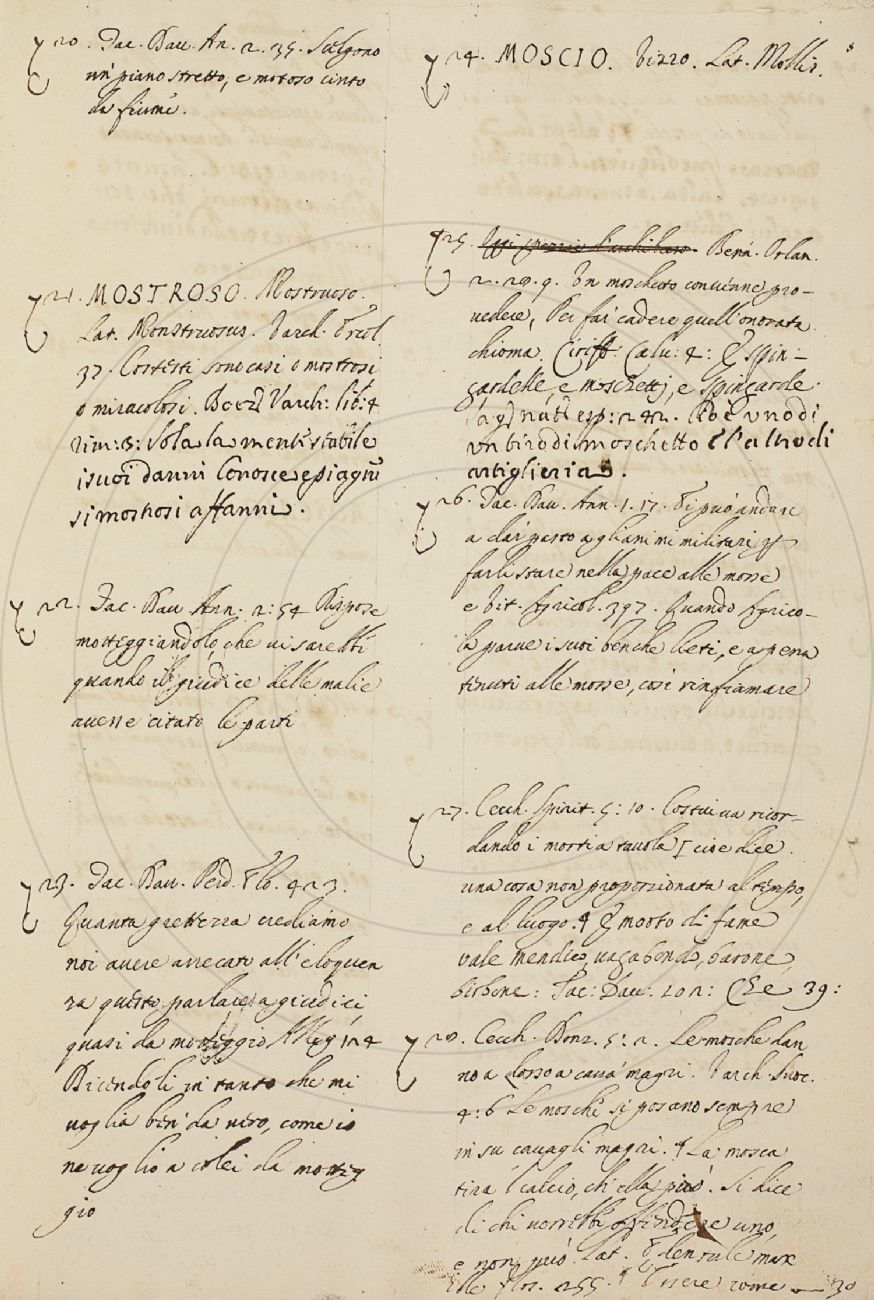 20. Tac. Dav. An. 2. 35. Scelgono
un piano stretto, e motoso cinto
da fiumi.
21. MOSTROSO. Mostruoso.
Lat. Monstruosus. Varch. Ercol.
37. Cotesti sono casi o mostrosi
o miracolosi. Boez. Varch: lib: 4
rim: 3: Sola la mente stabile
i suoi danni Conosce e piagne
si mostrosi affanni.
22. Tac. Dav. Ann. 2: 54 Rispose
motteggiandolo, che vi sarebbe
quando il giudice delle malie
avesse citato le parti
23. Tac. Dav. Perd. Elo. 423.
Quanta grettezza crediamo
noi avere arrecato all'eloquen
za questo parlare a giudici
quasi da motteggio Alleg 124
Dicendoli in tanto che mi
voglia ben da vero, come io
ne voglio a colei da motteg
gio
24. MOSCIO. Vizzo. Lat. Mollis.
25. Bern. Orlan.
2. 29. 9. Un moscherto convienne pro-
vedere, Per far cadere quell'onorata
chioma. Ciriff. Calu: 4: E spin-
gardelle, e moschetti, e spingarde.
esp: 242. Cioè uno di
un tiro di moschetto e l'altro di
artiglieria.
26. Tac. Dav. Ann. 1. 17. Si può andare
a dar pasto agli animi militari
farli stare nella pace alle mosse
e Vit. Agricol. 397. Quando Agrico-
la parve i suoi benche lieti, e a pena
tenuti alle mosse, così rinfiamare
27. Cecch. Spirit. 5: 10. Costui va ricor-
dando i morti a tavola [cioe dice
una cosa non proporzionata al tempo,
e al luogo. E morto di fame
vale mendico, vagabondo, barone,
birbone: Tac: Dav: 39:
28. Cecch. Donz. 5: 2. Le mosche dan
no a dosso a cava' magri. Varch. Suoc.
4: 6 Le mosche si posano sempre
in su cavagli magri. La mosca
tira i calcio, ch'ella può. Si dice
di chi vorrebbe offendere uno,
e non può Lat.
Flos. 255. Essere come 30